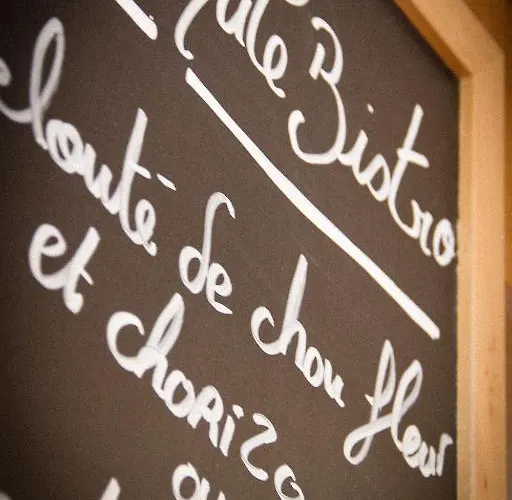 Bistro
louté de chou fleur
et chorizo
ou